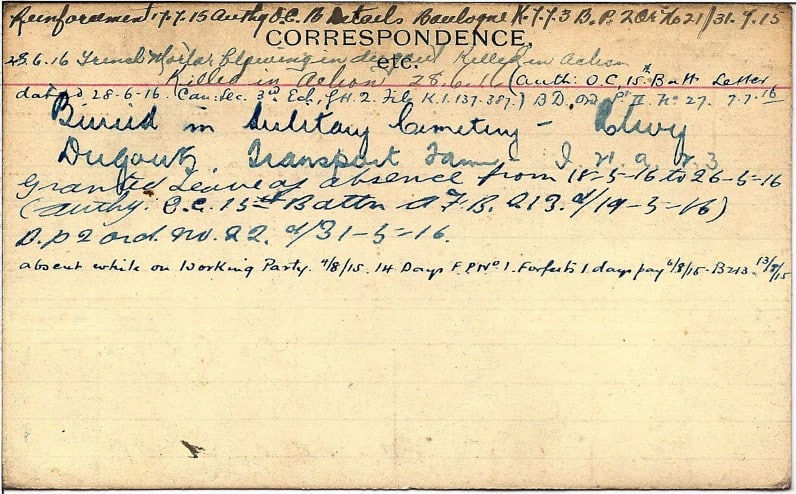 Reinforcement 17.7.15 Authy O.C. B Details Boulogne K-7-7-3 B.P. 2 Or No 21/31.7.15
CORRESPONDENCE
28.6.16 Trench Mortar blowing in dugout Killed in action
etc.
Killed in Action 28.6.16 (Auth: O.C. 15th Batt. Letter
dated 28-6-16. Can. Sec. 3rd Ech, G.H.Q. File K.1.137.387.) B D. Pt II. No 27. 7.7.16
Buried in Military Cemetery -
Dugouts Transport Farm - I. 21. a. 3
Granted Leave of absence from 18-5-16 to 26-5-16
(Authy. O.C. 15th Battn A.F.B. 213. d/19-5-16)
D.p 2 ord. No. 22. d/31-5-16.
absent while on Working Party. 4/8/15. 14 Days F.P. No. 1. Forfeits 1 days pay 6/8/15 - B213. 13/8/15